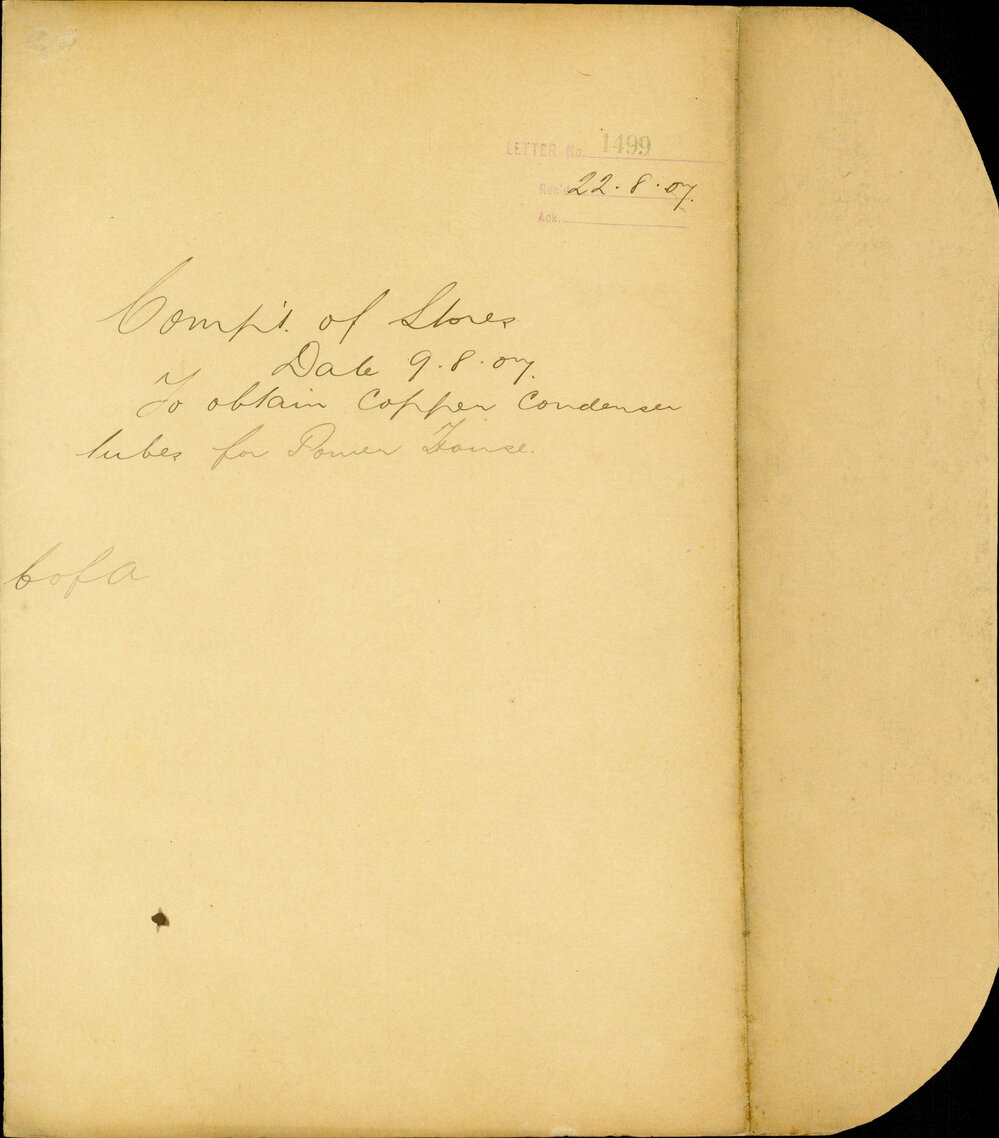 LETTER No. 1499
Rec'd 22.8.07.
Ack.
Comp't. of Stores
Date 9.8.07.
To obtain Copper Condenser
tubes for Power House.
C of A